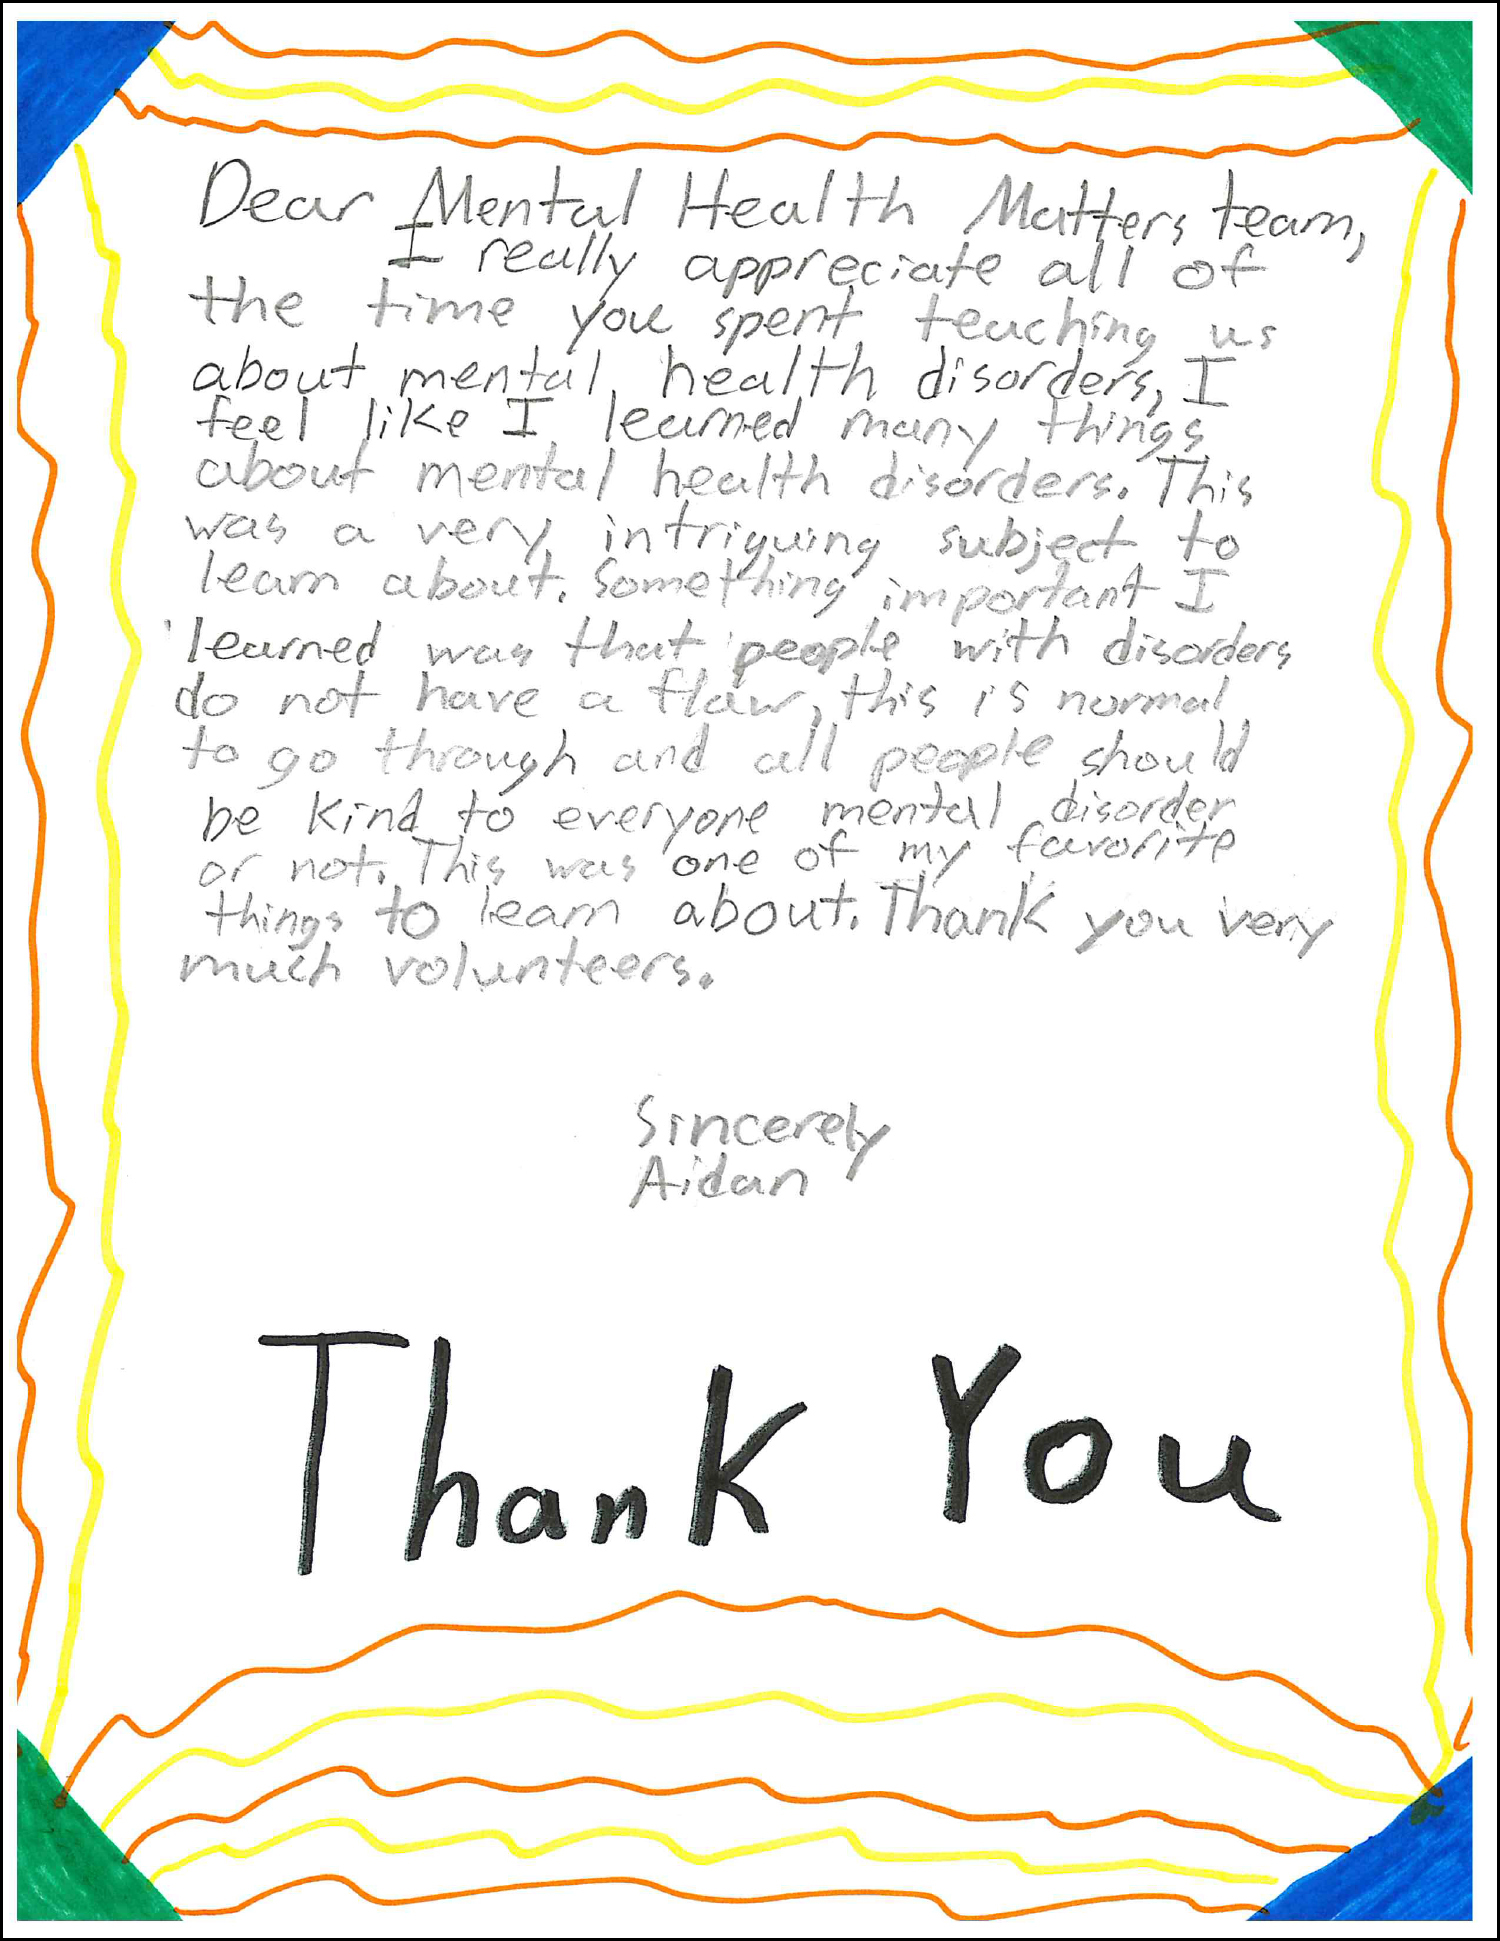 Dear Mental Health Matters team,
I really appreciate all of
the time you spent teaching us
about mental health disorders, I
feel like I learned many things
about mental health disorders. This
was a very intriguing subject to
learn about. Something important I
learned was that people with disorders
do not have a flaw, this is normal
to go through and all people should
be kind to everyone mental disorder
or not. This was one of my favorite
things to learn about. Thank you very
much volunteers.
Sincerely
Aidan
Thank You